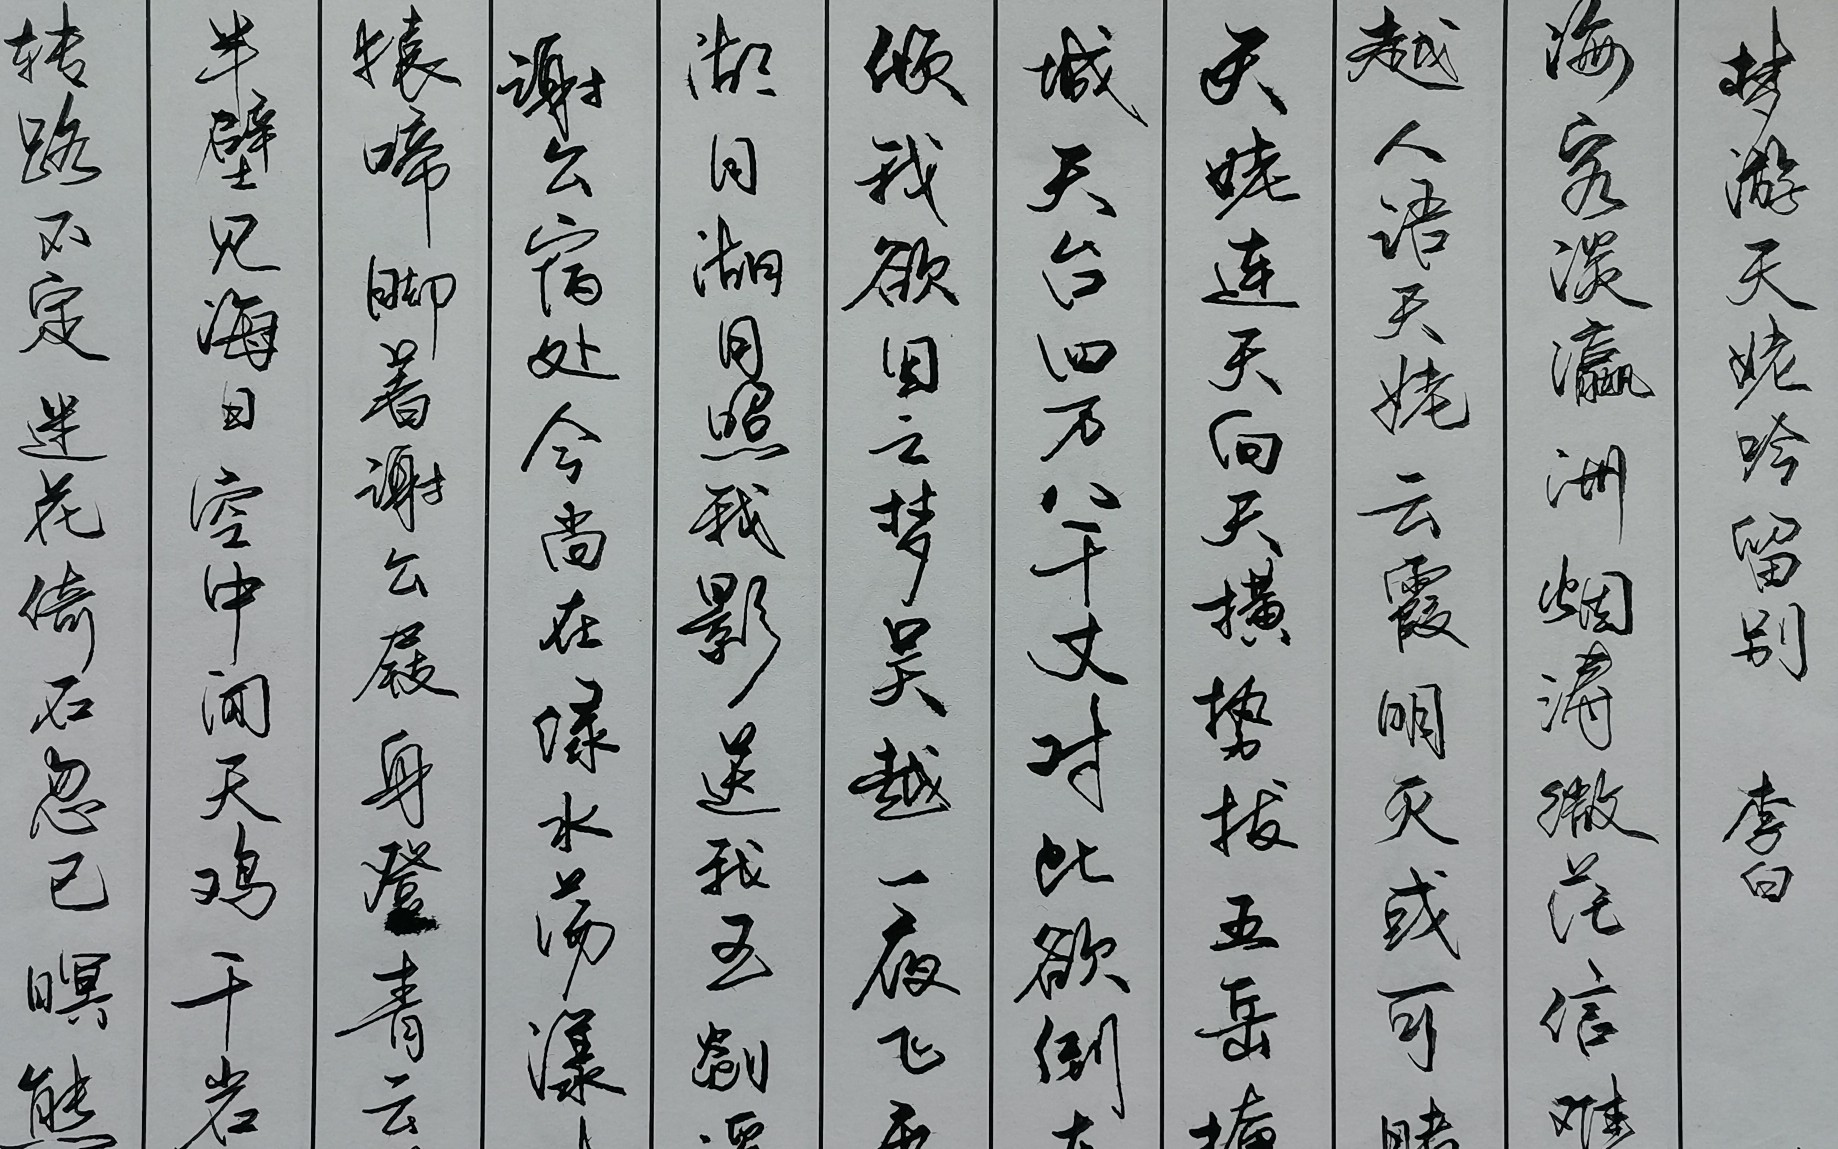 梦游天姥吟留别 李白
海客谈瀛洲烟涛微茫信难
越人语天姥云霞明灭或可睹
天姥连天向天横势拔五岳掩
城天台四万八千丈对此欲倒东
倾我欲因之梦吴越一夜飞
湖月湖月照我影送我至剡溪
谢公宿处今尚在渌水荡漾
猿啼脚着谢公屐身登青云
半壁见海日空中闻天鸡千岩
转路不定迷花倚石忽已暝熊